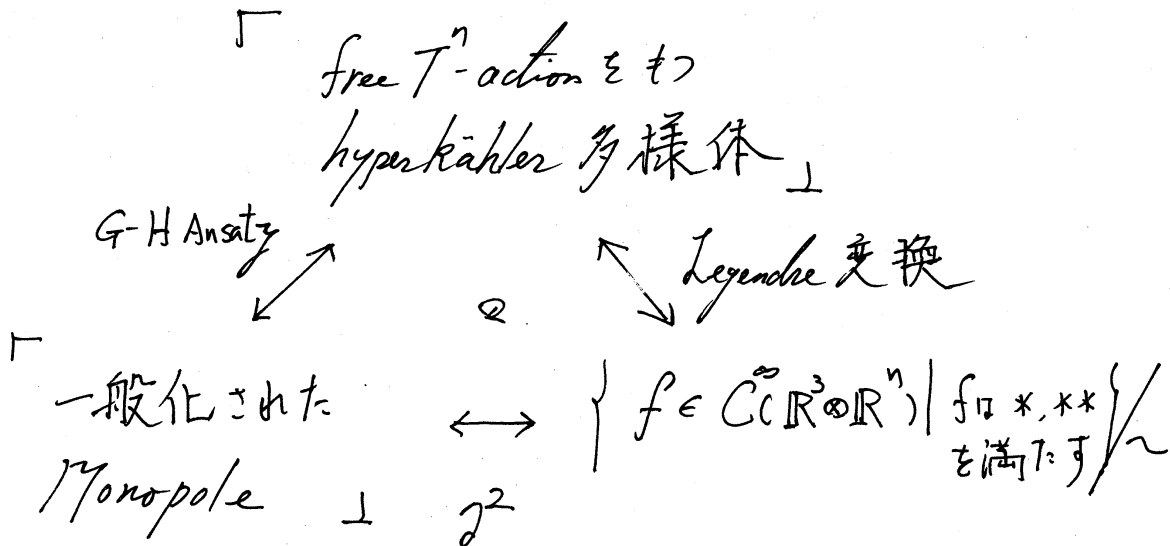 「free Tⁿ-actionをもつ
hyperkähler 多様体」
G-H Ansatz
Legendre 変換
「一般化された
Monopole」
∂²
{ f ∈ C^∞(ℝ³⊗ℝⁿ) | fは *, **
を満たす}/~